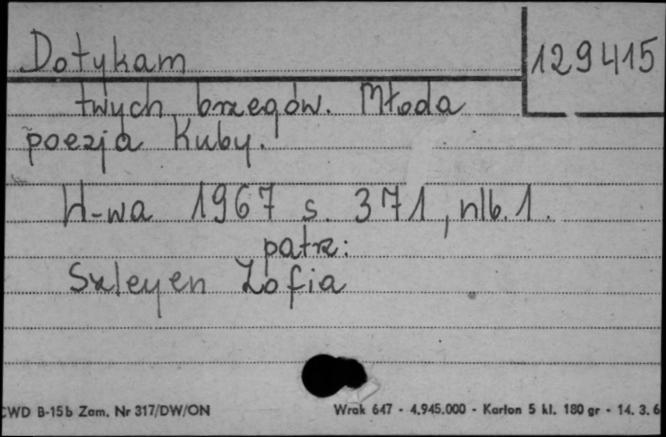 Dotykam
129415
twych brzegów. Młoda
poezja Kuby.
W-wa 1967 s. 371, nlb. 1.
patrz:
Szleyen Zofia
CWD B-15b Zam. Nr 317/DW/ON Wrak 647 - 4.945.000 - Karton 5 kl. 180 gr - 14. 3. 6